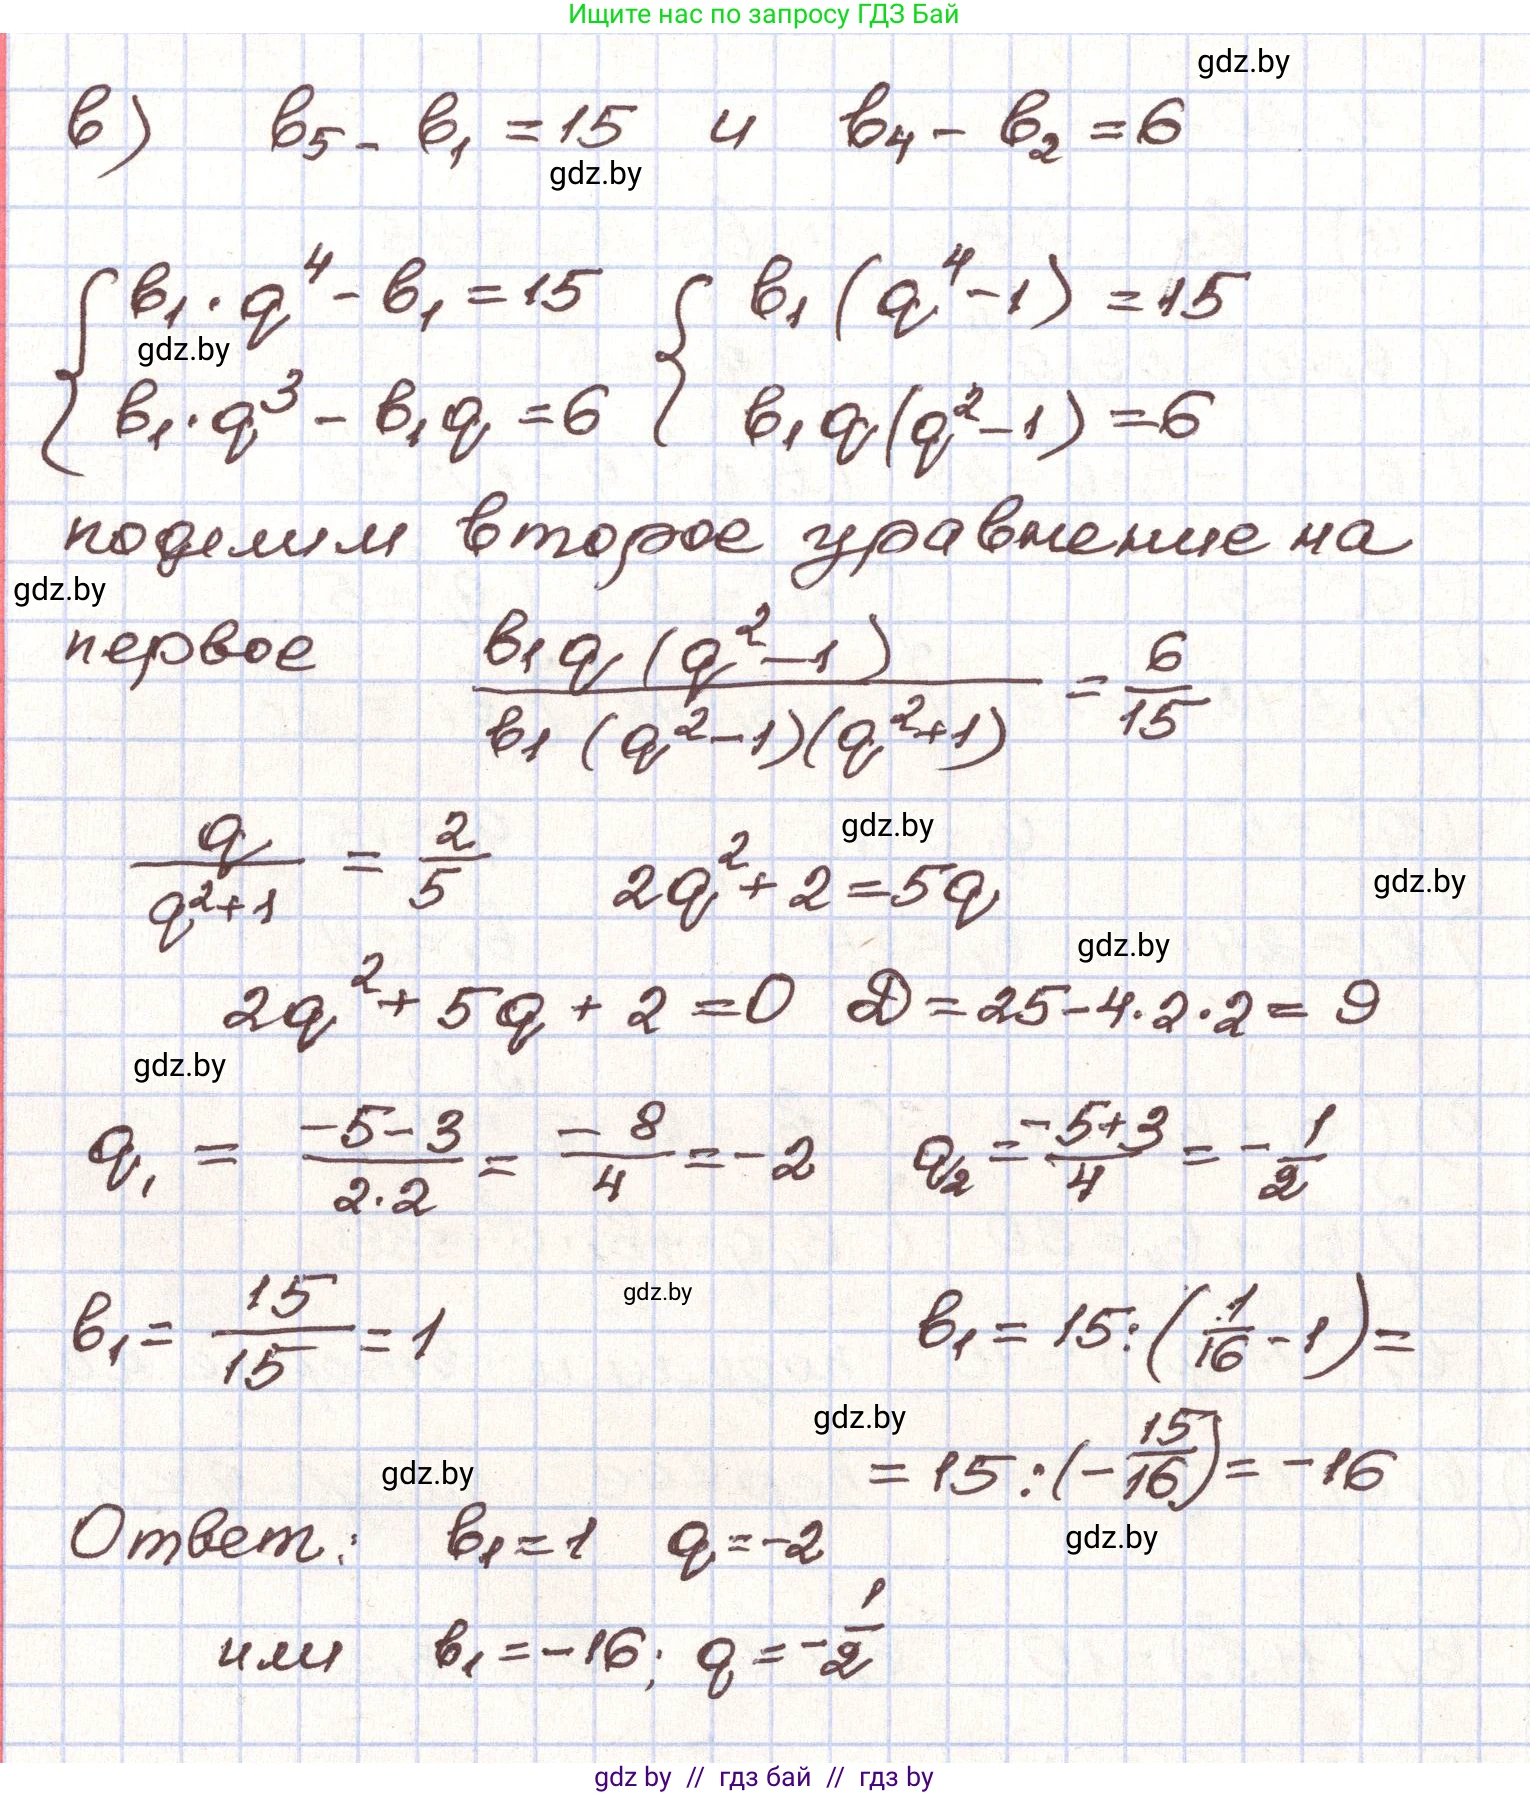 Ищите нас по запросу ГДЗ Бай
gdz.by
в) b₅ - b₁ = 15 и b₄ - b₂ = 6
gdz.by
{ b₁ · q⁴ - b₁ = 15 { b₁ (q⁴ - 1) = 15
gdz.by
b₁ · q³ - b₁q = 6 b₁q(q² - 1) = 6
поделим второе уравнение на
gdz.by
первое b₁q(q² - 1) / b₁(q² - 1)(q² + 1) = 6/15
gdz.by
q/(q² + 1) = 2/5 2q² + 2 = 5q
gdz.by
gdz.by
2q² + 5q + 2 = 0 D = 25 - 4 · 2 · 2 = 9
gdz.by
q₁ = (-5 - 3)/(2 · 2) = -8/4 = -2 q₂ = (-5 + 3)/4 = -1/2
gdz.by
b₁ = 15/15 = 1 b₁ = 15 : (1/16 - 1) =
gdz.by
= 15 : (-15/16) = -16
gdz.by
gdz.by
Ответ: b₁ = 1 q = -2
или b₁ = -16; q = -1/2
gdz by // гдз бай // гдз by